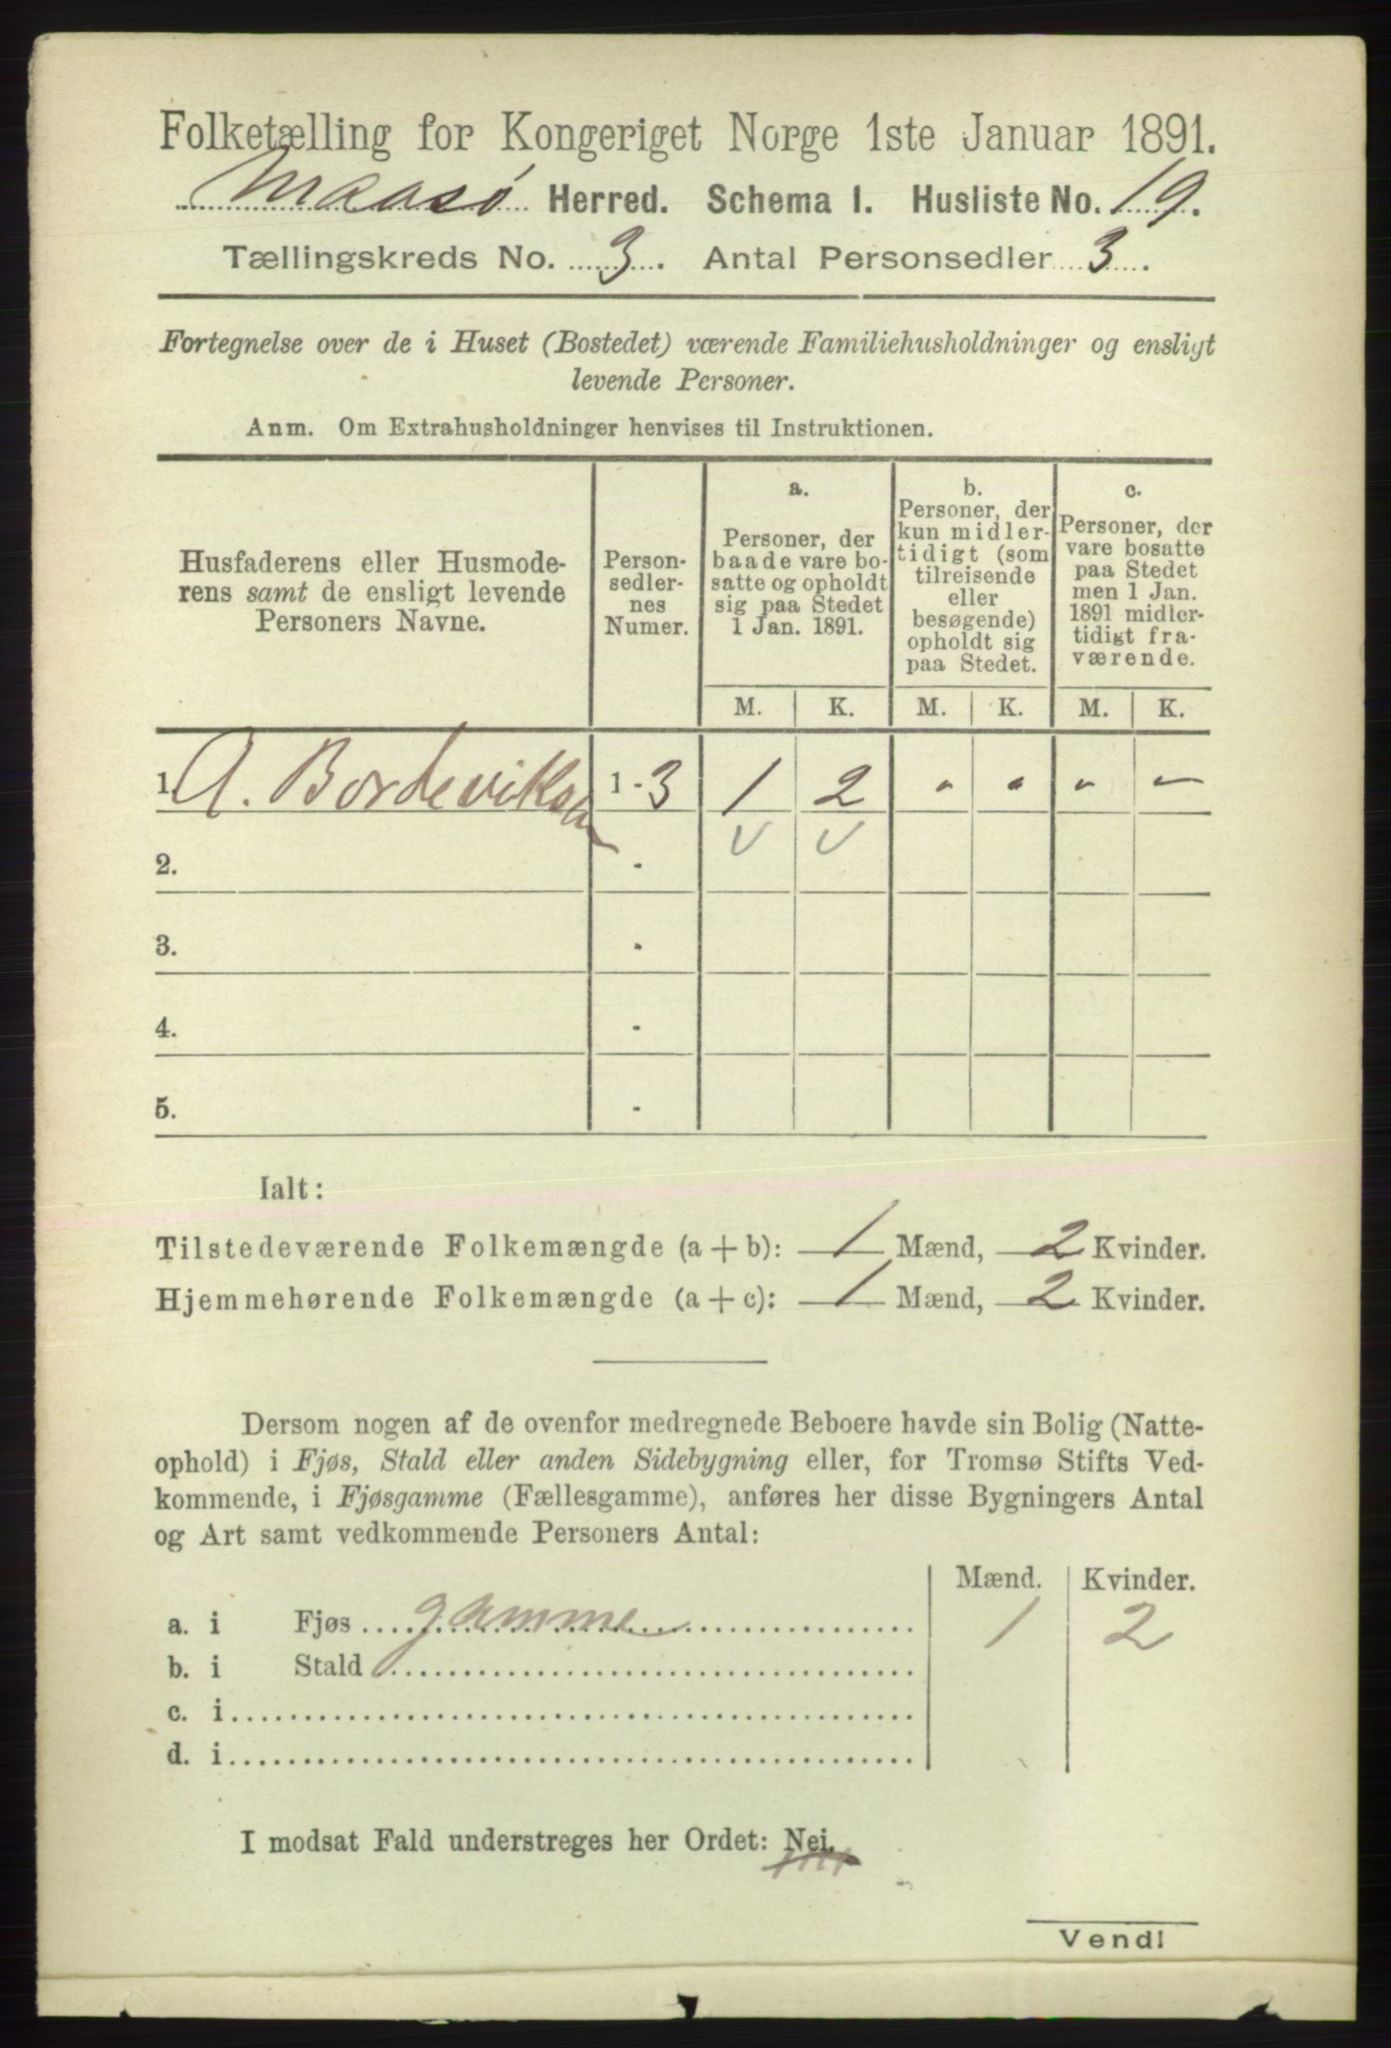 Folketælling for Kongeriget Norge 1ste Januar 1891.
Maasø Herred. Schema I. Husliste No. 19.
Tællingskreds No. 3. Antal Personsedler 3.
Fortegnelse over de i Huset (Bostedet) værende Familiehusholdninger og ensligt
levende Personer.
Anm. Om Extrahusholdninger henvises til Instruktionen.
Husfaderens eller Husmode-
rens samt de ensligt levende
Personers Navne.
Person-
sedler-
nes
Numer.
a.
Personer, der
baade vare bo-
satte og opholdt
sig paa Stedet
1 Jan. 1891.
b.
Personer, der
kun midler-
tidigt (som
tilreisende
eller
besøgende)
opholdt sig
paa Stedet.
c.
Personer, der
vare bosatte
paa Stedet
men 1 Jan.
1891 midler-
tidigt fra-
værende.
M. K. M. K. M. K.
1. A. 1-3 1 2 " " " "
2. -
3. -
4. -
5. -
Ialt:
Tilstedeværende Folkemængde (a + b): 1 Mænd, 2 Kvinder.
Hjemmehørende Folkemængde (a + c): 1 Mænd, 2 Kvinder.
Dersom nogen af de ovenfor medregnede Beboere havde sin Bolig (Natte-
ophold) i Fjøs, Stald eller anden Sidebygning eller, for Tromsø Stifts Ved-
kommende, i Fjøsgamme (Fællesgamme), anføres her disse Bygningers Antal
og Art samt vedkommende Personers Antal:
Mænd. Kvinder.
a. i Fjøs gamme 1 2
b. i Stald
c. i
d. i
I modsat Fald understreges her Ordet: Nei.
Vend!